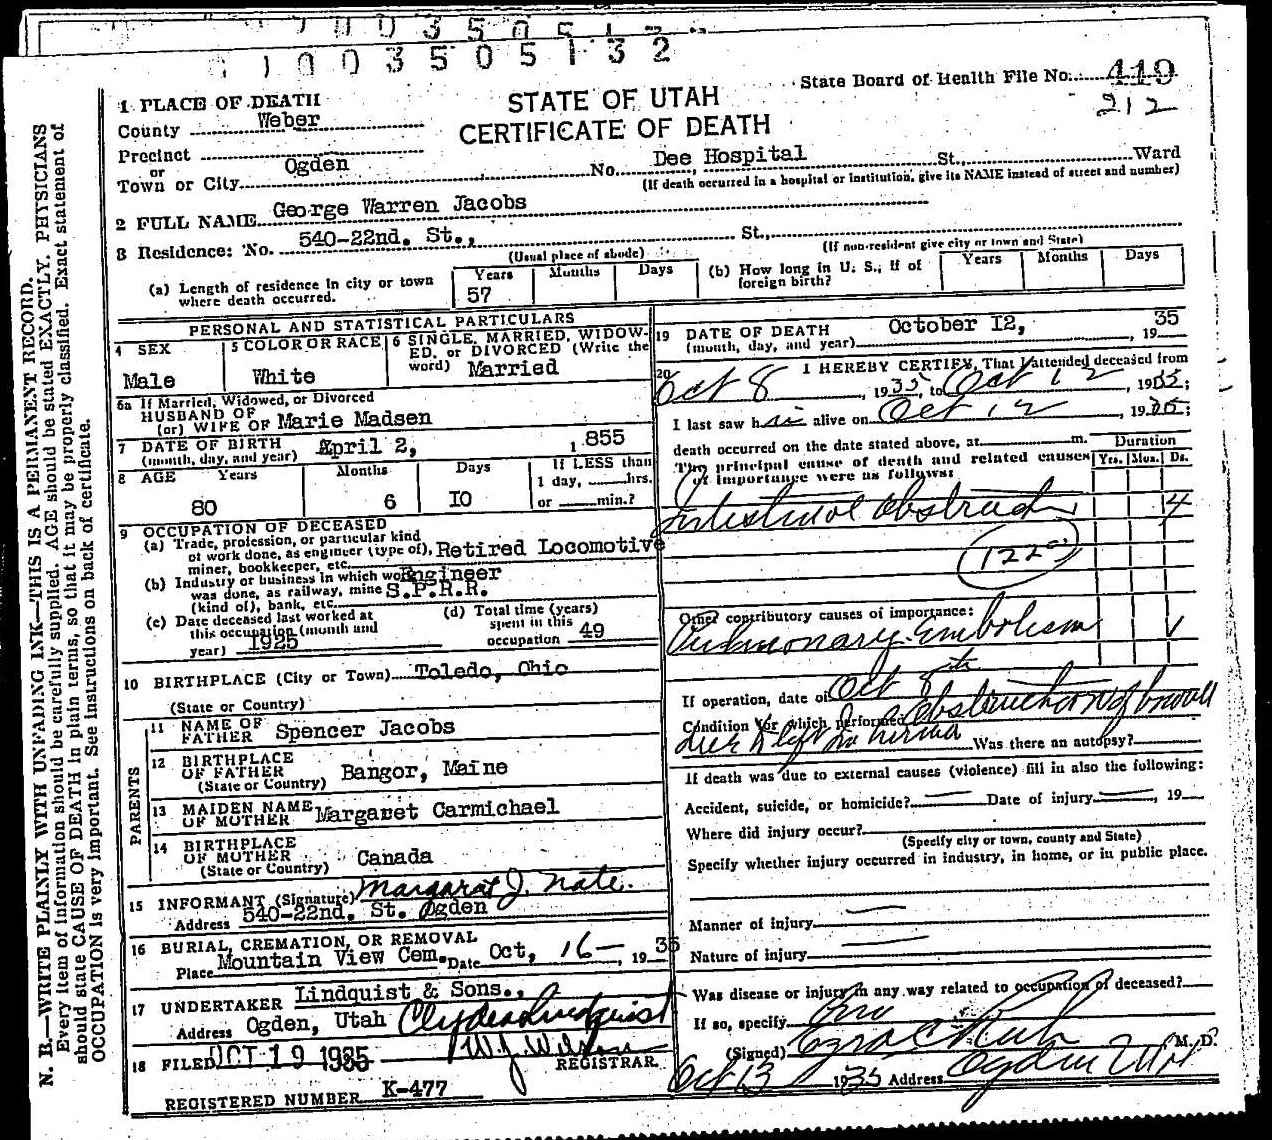 1003505132
State Board of Health File No. 419
212
STATE OF UTAH
CERTIFICATE OF DEATH
1 PLACE OF DEATH
County Weber
Precinct
or
Town or City Ogden No. Dee Hospital St., Ward
(If death occurred in a hospital or institution, give its NAME instead of street and number)
2 FULL NAME George Warren Jacobs
3 Residence: No. 540-22nd. St., St.,
(Usual place of abode) (If non-resident give city or town and State)
(a) Length of residence in city or town where death occurred. Years 57 Months Days
(b) How long in U. S., if of foreign birth? Years Months Days
PERSONAL AND STATISTICAL PARTICULARS
4 SEX Male
5 COLOR OR RACE White
6 SINGLE, MARRIED, WIDOWED, or DIVORCED (Write the word) Married
6a If Married, Widowed, or Divorced
HUSBAND OF
(or) WIFE OF Marie Madsen
7 DATE OF BIRTH April 2, 1855
(month, day, and year)
8 AGE Years 80 Months 6 Days 10 If LESS than 1 day, hrs. or min.?
9 OCCUPATION OF DECEASED
(a) Trade, profession, or particular kind of work done, as engineer (type of), miner, bookkeeper, etc. Retired Locomotive Engineer
(b) Industry or business in which work was done, as railway, mine (kind of), bank, etc. S.P.R.R.
(c) Date deceased last worked at this occupation (month and year) 1925
(d) Total time (years) spent in this occupation 49
10 BIRTHPLACE (City or Town) Toledo, Ohio
(State or Country)
PARENTS
11 NAME OF FATHER Spencer Jacobs
12 BIRTHPLACE OF FATHER (State or Country) Bangor, Maine
13 MAIDEN NAME OF MOTHER Margaret Carmichael
14 BIRTHPLACE OF MOTHER (State or Country) Canada
15 INFORMANT (Signature) Margaret J. Nate.
Address 540-22nd. St. Ogden
16 BURIAL, CREMATION, OR REMOVAL
Place Mountain View Cem. Date Oct, 16- , 1935
17 UNDERTAKER Lindquist & Sons.,
Address Ogden, Utah Clyde Lindquist
18 FILED OCT 19 1935 W. J. Wilson REGISTRAR.
REGISTERED NUMBER K-477
19 DATE OF DEATH October 12, 1935
(month, day, and year)
20 I HEREBY CERTIFY, That I attended deceased from
Oct 8, 1935, to Oct 12, 1935;
I last saw h alive on Oct 12, 1935;
death occurred on the date stated above, at m.
The principal cause of death and related causes of importance were as follows:
Duration
Yrs. Mos. Ds.
Intestinal Obstruction 4
122
Other contributory causes of importance:
Pulmonary Embolism 1
If operation, date of Oct 8th
Condition for which performed Obstruction of bowell
due to left in hernia Was there an autopsy?
If death was due to external causes (violence) fill in also the following:
Accident, suicide, or homicide? Date of injury , 19
Where did injury occur?
(Specify city or town, county and State)
Specify whether injury occurred in industry, in home, or in public place.
Manner of injury
Nature of injury
Was disease or injury in any way related to occupation of deceased?
If so, specify no
(Signed) Ezra C Rich (M. D.
Oct 13 1935 Address Ogden Utah
N. B.—WRITE PLAINLY WITH UNFADING INK—THIS IS A PERMANENT RECORD.
Every item of information should be carefully supplied. AGE should be stated EXACTLY. PHYSICIANS
should state CAUSE OF DEATH in plain terms, so that it may be properly classified. Exact statement of
OCCUPATION is very important. See instructions on back of certificate.